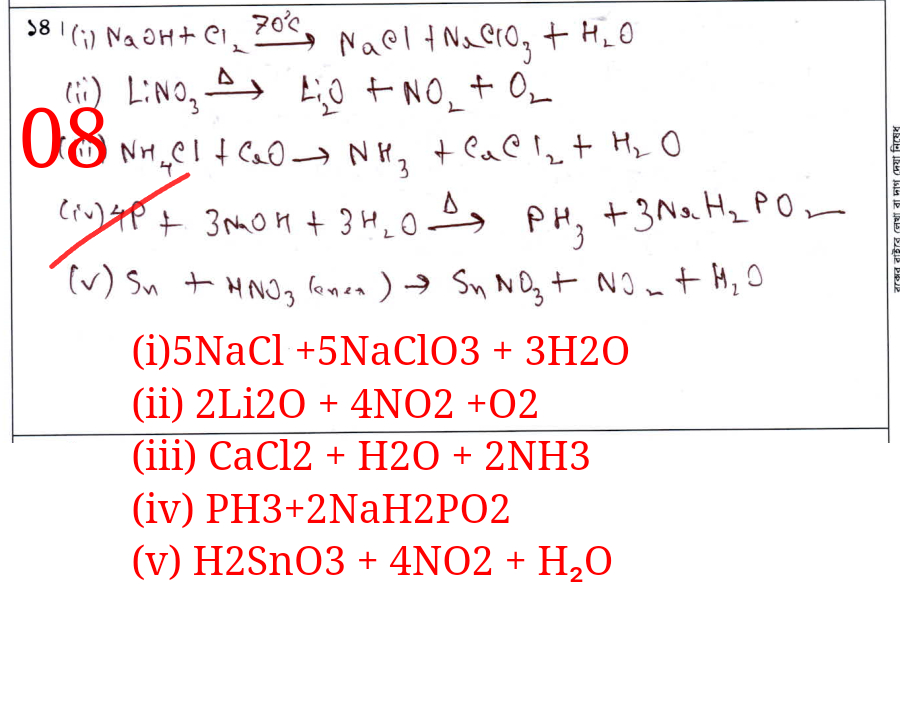 ১৪। (i) NaOH + Cl₂ 70°C → NaCl + NaClO₃ + H₂O
(ii) LiNO₃ Δ → Li₂O + NO₂ + O₂
08
(iii) NH₄Cl + CaO → NH₃ + CaCl₂ + H₂O
(iv) 4P + 3NaOH + 3H₂O Δ → PH₃ + 3NaH₂PO₂
(v) Sn + HNO₃ → SnNO₃ + NO₂ + H₂O
(i)5NaCl +5NaClO3 + 3H2O
(ii) 2Li2O + 4NO2 +O2
(iii) CaCl2 + H2O + 2NH3
(iv) PH3+2NaH2PO2
(v) H2SnO3 + 4NO2 + H₂O